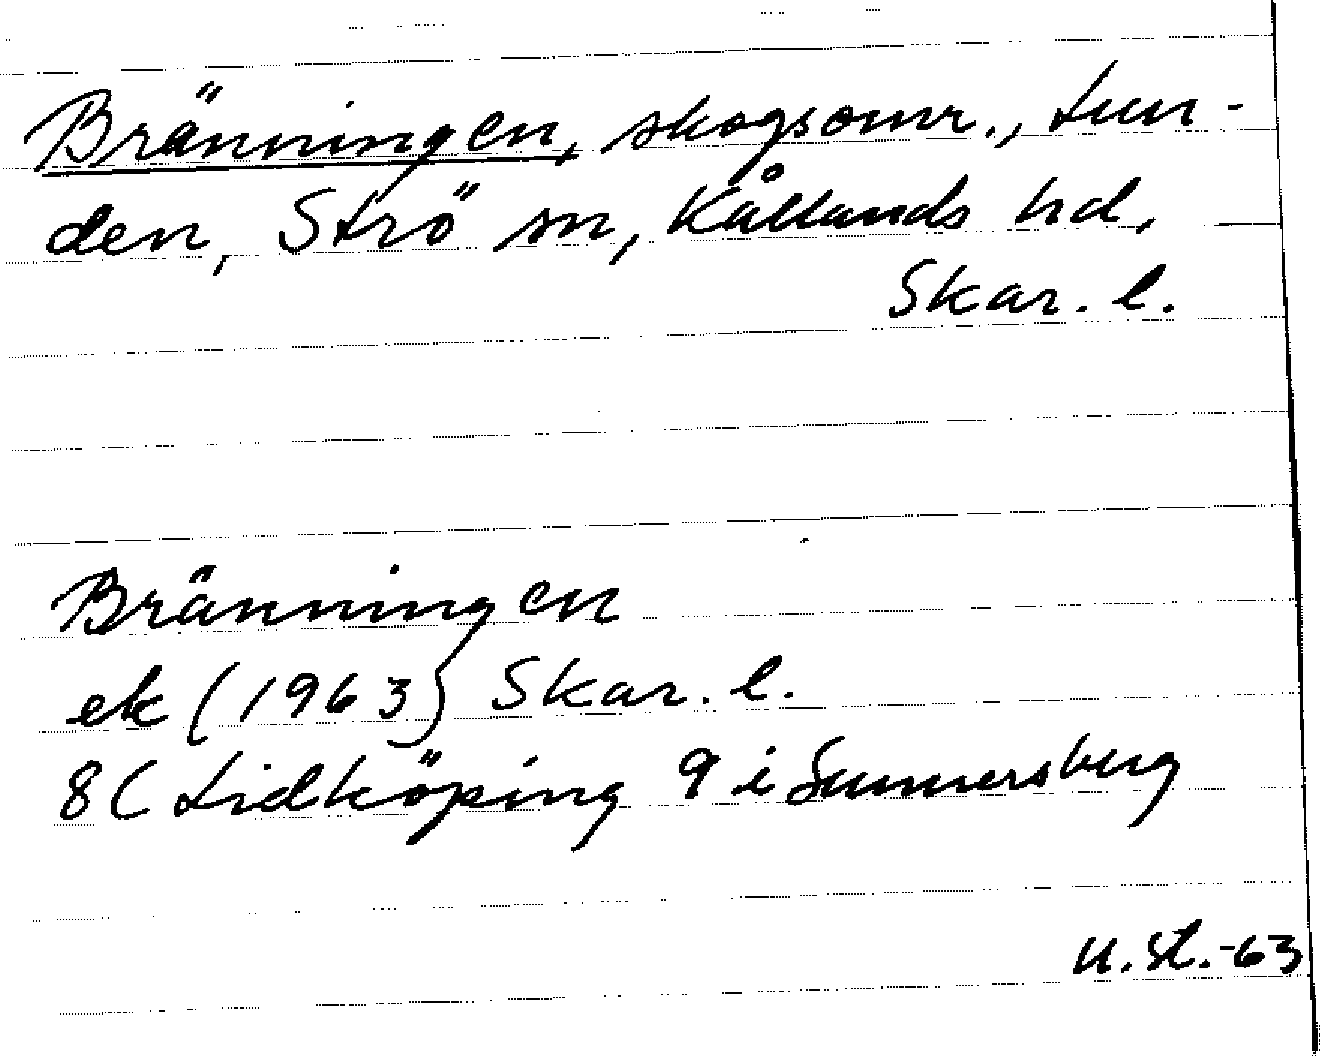 Bränningen, skogsomr., Lun-
den, Strö sn, Kållands hd,
Skar. l.
Bränningen
ek (1963) Skar. l.
8C Lidköping 9 i Sunnersberg
U. St. -63